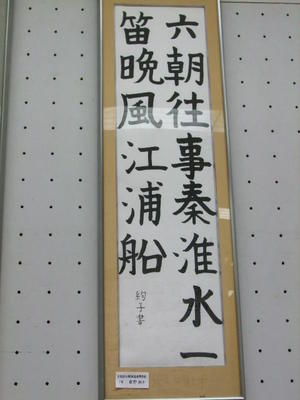 六朝往事秦淮水一
笛晩風江浦船
絢子書